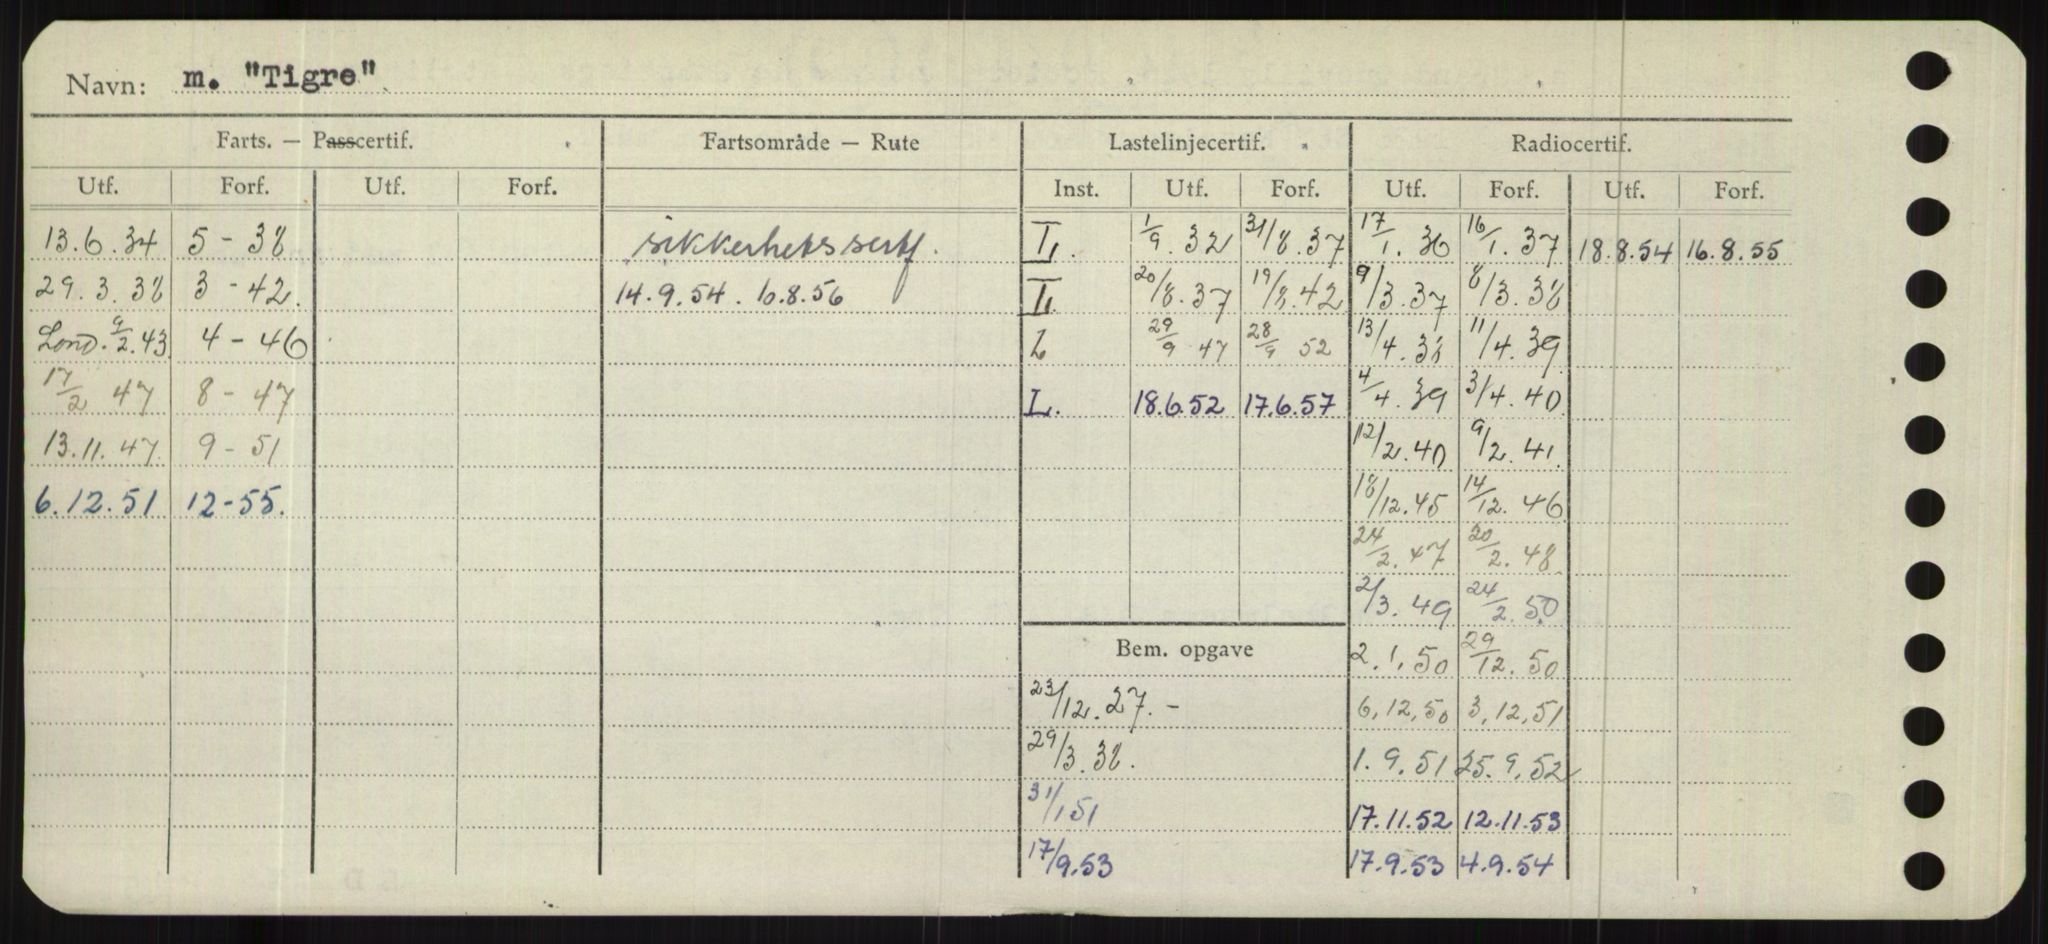 Navn: m. "Tigre"
Farts. — Passcertif. Fartsområde — Rute Lastelinjecertif. Radiocertif.
Utf. Forf. Utf. Forf. Inst. Utf. Forf. Utf. Forf. Utf. Forf.
13.6.34 5 - 38 sikkerhetssertf. L. 1/9.32 31/8.37 17/1.36 16/1.37 18.8.54 16.8.55
29.3.38 3 - 42. 14.9.54. 10.8.56 L. 20/8.37 19/8.42 9/3.37 8/3.38
Lond. 9/2.43 4 - 46 L 29/9 47 28/9 52 13/4.38 11/4.39
17/2 47 8 - 47 L. 18.6.52 17.6.57 4/4.39 3/4.40
13.11.47 9 - 51 12/2.40 9/2.41.
6.12.51 12-55. 18/12.45 14/12.46
24/2.47 20/2.48
2/3.49 24/2.50
Bem. opgave 2.1.50 29/12.50
23/12.27.- 6,12,50 3,12,51
29/3.38. 1.9.51 25.9,52
31/1 51 17.11.52 12.11.53
17/9.53 17.9.53 4.9.54